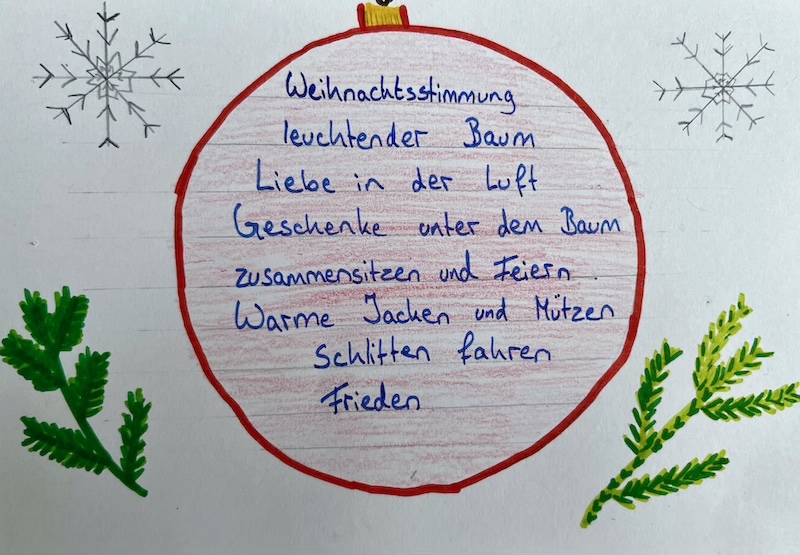 Weihnachtsstimmung
leuchtender Baum
Liebe in der Luft
Geschenke unter dem Baum
zusammensitzen und Feiern.
Warme Jacken und Mützen
Schlitten fahren
Frieden